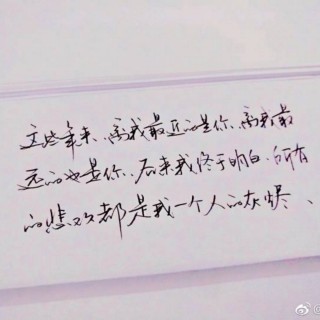 这些年来、离我最近的是你、离我最
远的也是你、后来我终于明白、所有
的悲欢都是我一个人的灰烬、